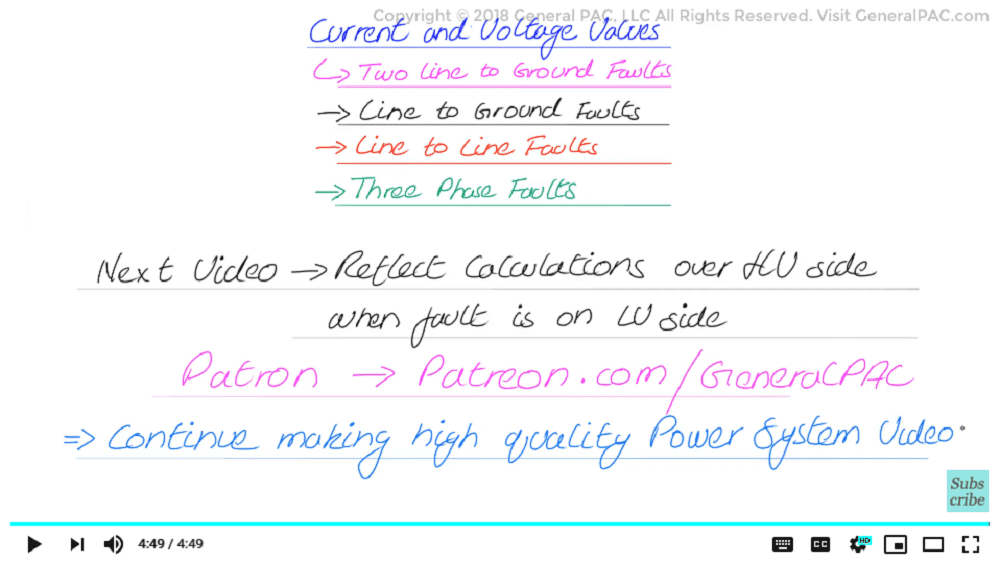 Copyright © 2018 General PAC, LLC All Rights Reserved. Visit GeneralPAC.com
Current and Voltage Values
↳ Two Line to Ground Faults
→ Line to Ground Faults
→ Line to Line Faults
→ Three Phase Faults
Next Video → Reflect Calculations over HV side
when fault is on LV side
Patron → Patreon.com/GeneralPAC
⇒ Continue making high quality Power System Video
Subs
cribe
4:49 / 4:49
CC
HD